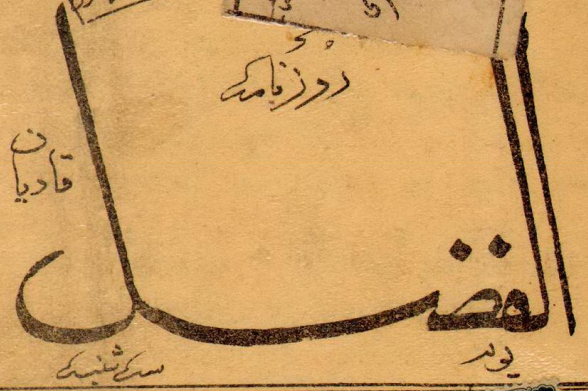 روزنامہ
قادیان
الفضل
یوم
سہ شنبہ